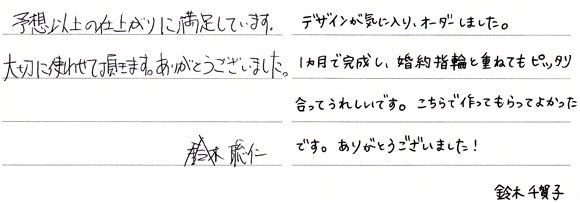 予想以上の仕上がりに満足しています。
大切に使わせて頂きます。ありがとうございました。
鈴木 聡仁
デザインが気に入り、オーダーしました。
1ヵ月で完成し、婚約指輪と重ねてもピッタリ
合ってうれしいです。こちらで作ってもらってよかった
です。ありがとうございました!
鈴木 千賀子